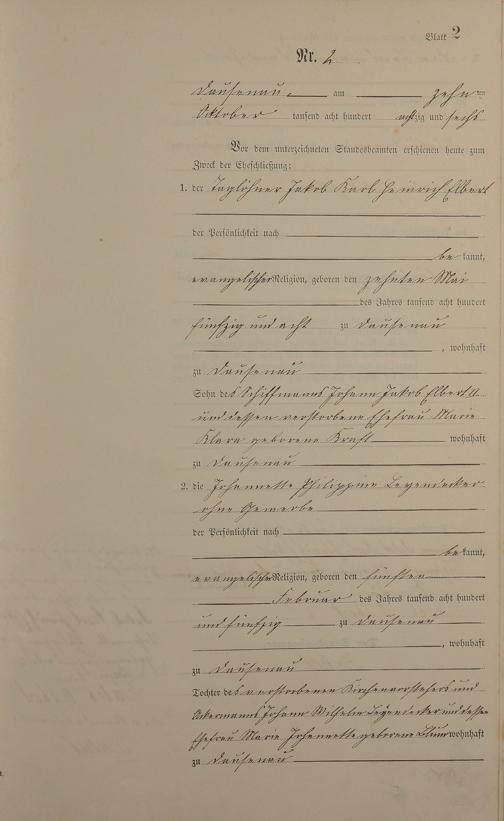 Blatt 2
Nr. 2
Dausenau am zehnten
Oktober tausend acht hundert achtzig und sechs
Vor dem unterzeichneten Standesbeamten erschienen heute zum
Zweck der Eheschließung:
1. der Taglöhner Jakob Karl Heinrich Elbert
der Persönlichkeit nach
bekannt,
evangelischer Religion, geboren den zehnten Mai
des Jahres tausend acht hundert
fünfzig und acht zu Dausenau
, wohnhaft
zu Dausenau
Sohn des Schiffmanns Johann Jakob Elbert
und dessen verstorbene Ehefrau Marie
Klara geborene Kraft wohnhaft
zu Dausenau
2. die Johannette Philippine Legendecker
ohne Gewerbe
der Persönlichkeit nach
bekannt,
evangelischer Religion, geboren den fünften
Februar des Jahres tausend acht hundert
und fünfzig zu Dausenau
, wohnhaft
zu Dausenau
Tochter des verstorbenen Kirchenvorstehers und
Ackermanns Johann Wilhelm Legendecker und dessen
Ehefrau Marie Johannette geborene Blum wohnhaft
zu Dausenau